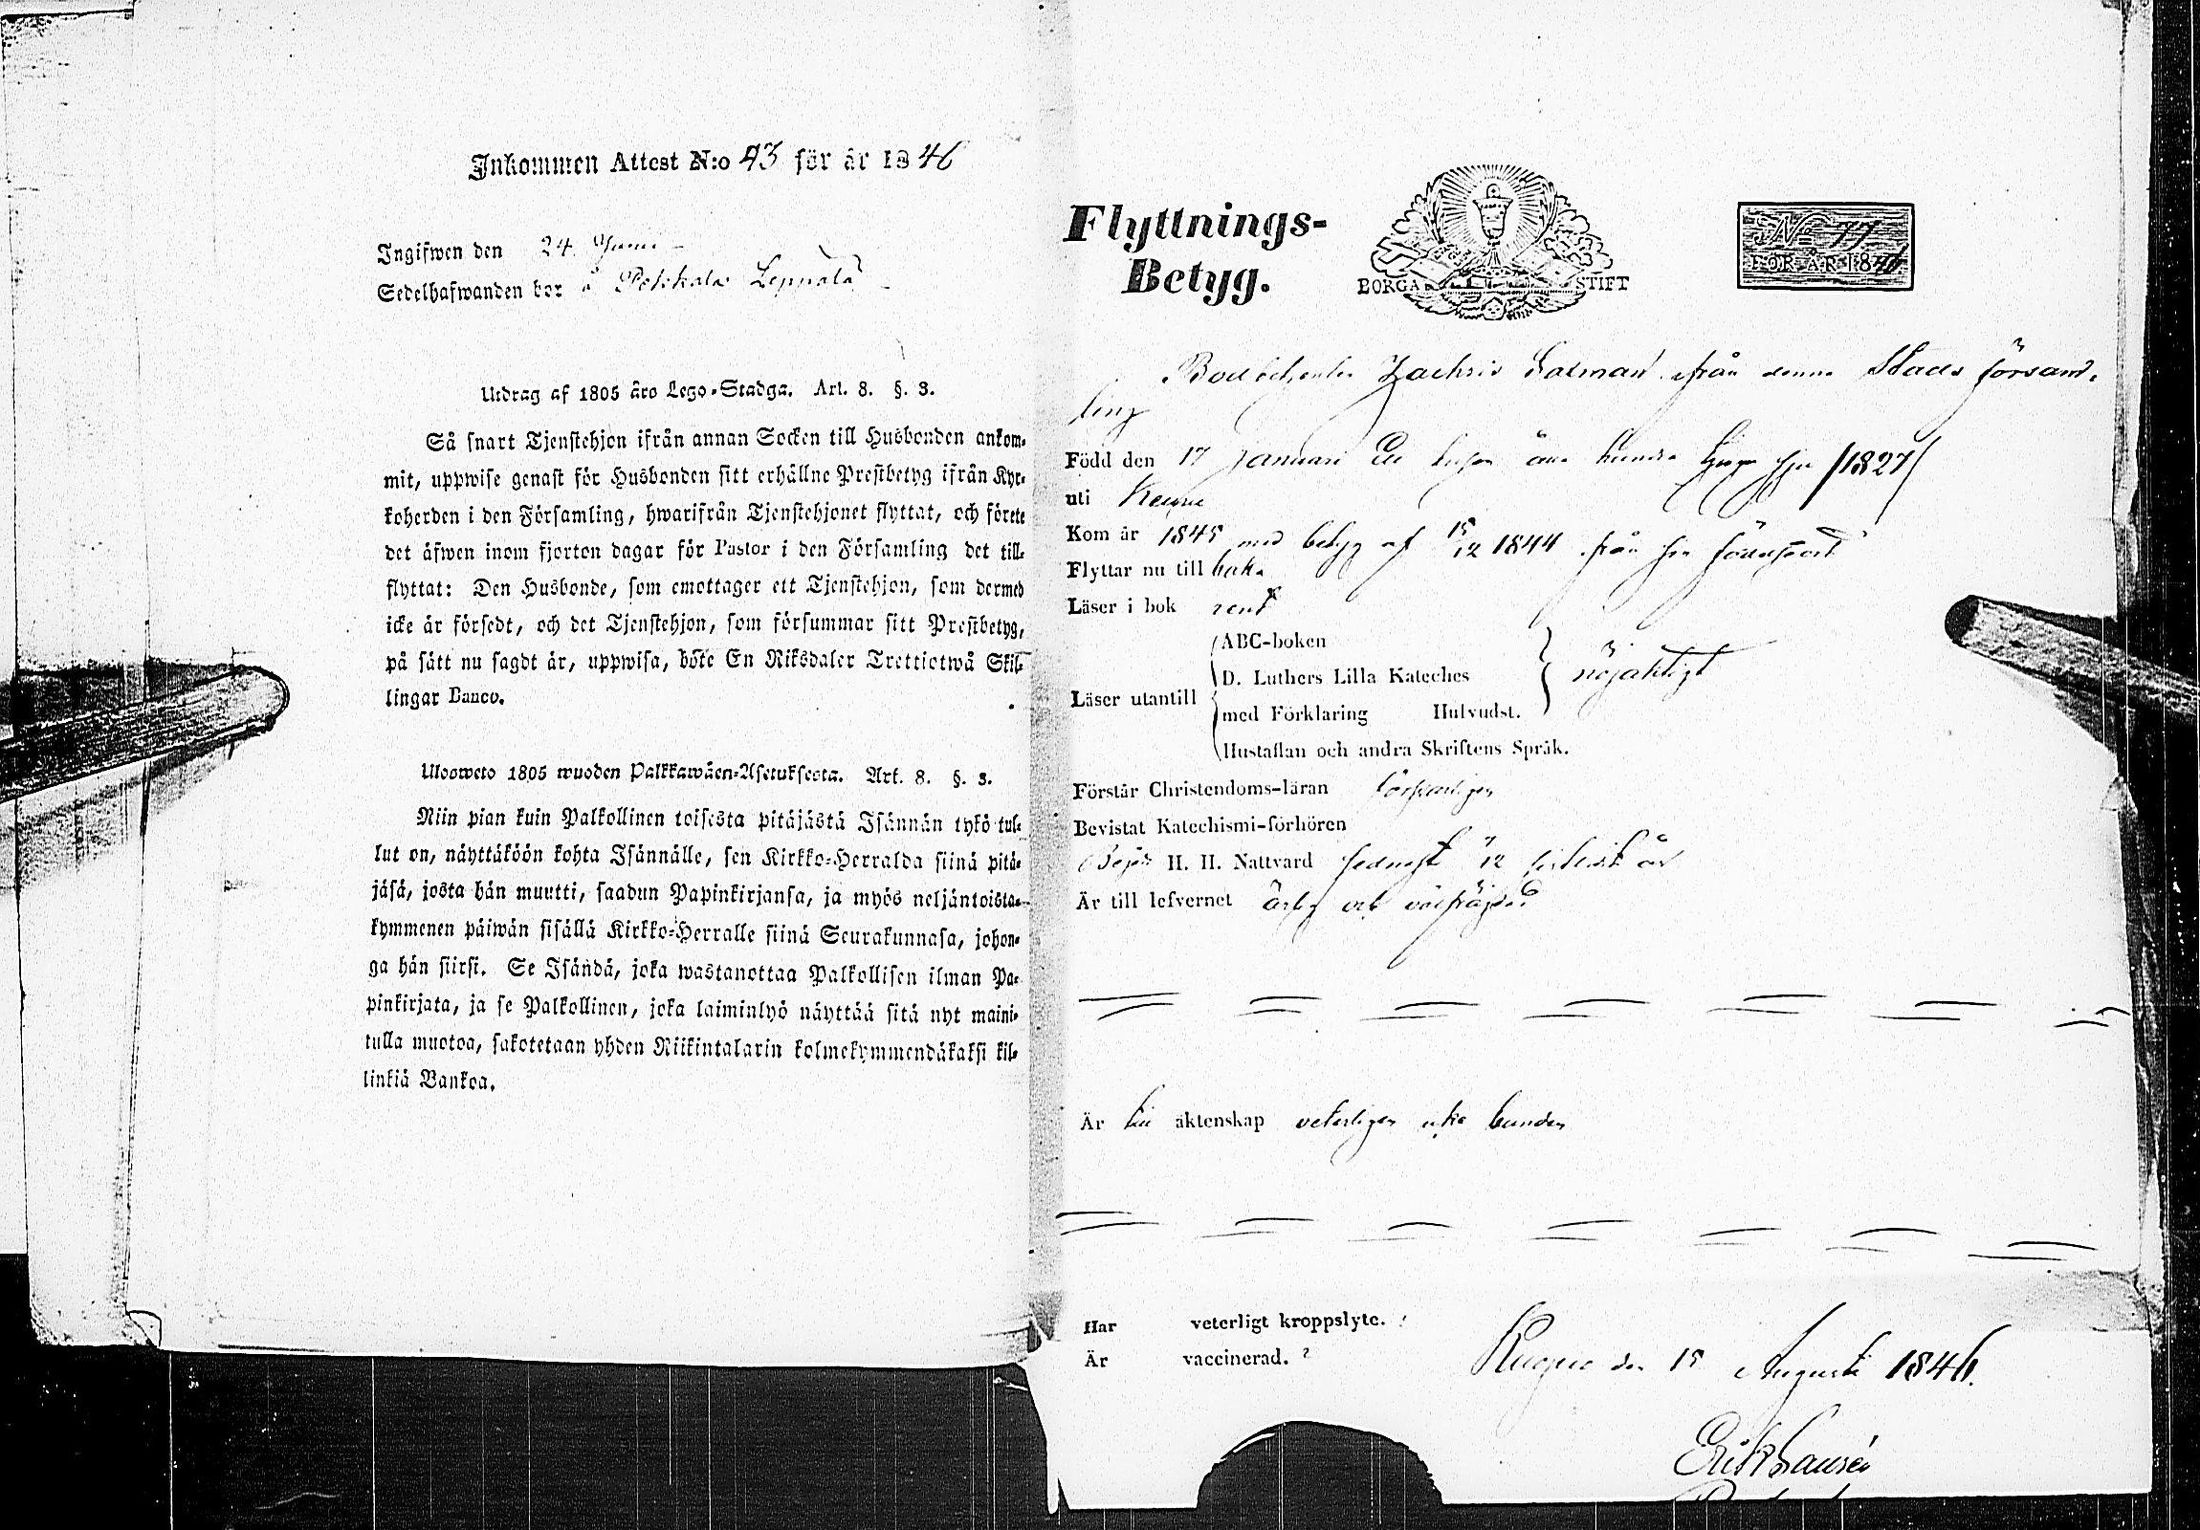 Inkommen Attest N:o 43 för år 1846
Ingifwen den 24. Juni
Sedelhafwanden bor å Pekkala Leppälä
Utdrag af 1805 års Lego-Stadga. Art. 8. §. 3.
Så snart Tjenstehjon ifrån annan Socken till Husbonden ankom-
mit, uppwise genast för Husbonden sitt erhållne Prestbetyg ifrån Kyr-
koherden i den Församling, hwarifrån Tjenstehjonet flyttat, och förete
det äfwen inom fjorton dagar för Pastor i den Församling det till-
flyttat: Den Husbonde, som emottager ett Tjenstehjon, som dermed
icke är försedt, och det Tjenstehjon, som försummar sitt Prestbetyg,
på sätt nu sagdt är, uppwisa, böte En Riksdaler Trettiotwå Skil-
lingar Banco.
Ulosweto 1805 wuoden Palkkawäen-Asetuksesta. Art. 8. §. 3.
Niin pian kuin Palkollinen toisesta pitäjästä Isännän tykö tul-
lut on, näyttäköön kohta Isännälle, sen Kirkko-Herralda siinä pitä-
jäsä, josta hän muutti, saadun Papinkirjansa, ja myös neljäntoista-
kymmenen päiwän sisällä Kirkko-Herralle siinä Seurakunnasa, johon-
ga hän siirsi. Se Isändä, joka wastanottaa Palkollisen ilman Pa-
pinkirjata, ja se Palkollinen, joka laiminlyö näyttää sitä nyt maini-
tulla muotoa, sakotetaan yhden Riikintalarin kolmekymmendäkaksi kil-
linkiä Bankoa.
Flyttnings-
Betyg.
BORGÅ STIFT
No 77
FÖR ÅR 1846
Zachris från denna Stads försam-
ling
Född den 17 Januari Ett tusen åtta hundra tjugu sju /1827/
uti
Kom år 1845 med betyg af 15/12 1844 från
Flyttar nu till bak.
Läser i bok rent
Läser utantill
ABC-boken
D. Luthers Lilla Kateches
med Förklaring Hufvudst.
Hustaflan och andra Skriftens Språk.
nöjaktigt
Förstår Christendoms-läran försvarligen
Bevistat Katechismi-förhören
Begått H. H. Nattvard sednast
Är till lefvernet ärlig och välfrägdad
Är till äktenskap veterligen icke bunden
Har veterligt kroppslyte.
Är vaccinerad. ?
Kuopio den 15 Augusti 1846.
Erik